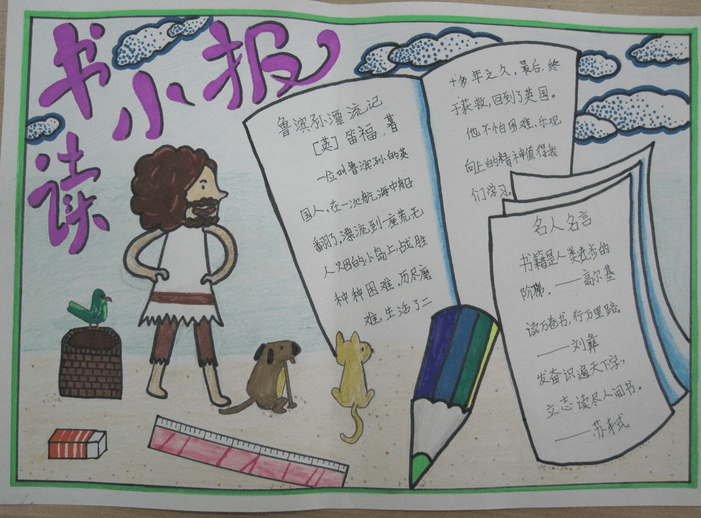 读书小报
鲁滨孙漂流记
[英]笛福.著
一位叫鲁滨孙的英
国人，在一次航海中船
翻了，漂流到一座荒无
人烟的小岛上，战胜
种种困难，历尽磨
难，生活了二
十多年之久，最后，终
于获救，回到了英国。
他不怕困难，乐观
向上的精神值得我
们学习。
名人名言
书籍是人类进步的
阶梯。——高尔基
读万卷书，行万里路。
——刘彝
发奋识遍天下字，
立志读尽人间书。
——苏轼